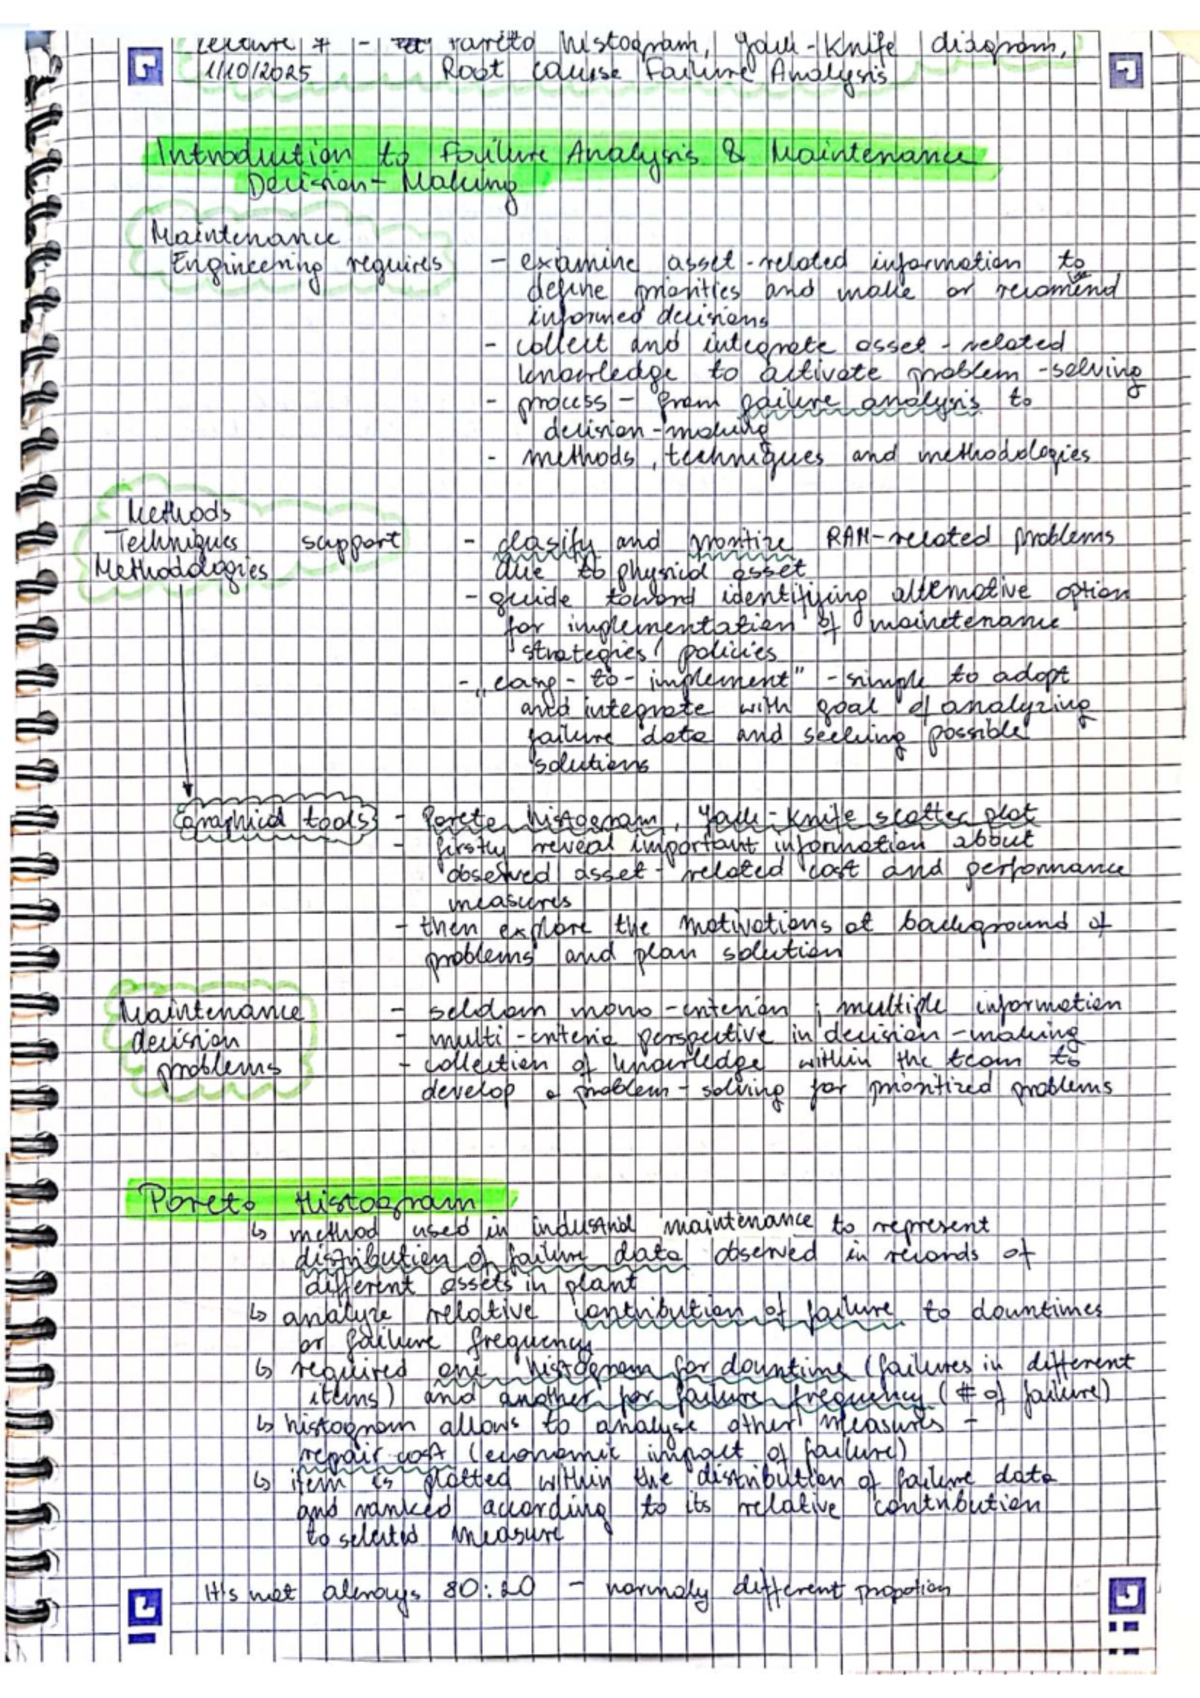 Lecture 7 - Pareto histogram, Jack-Knife diagram,
1/10/2025 Root Cause Failure Analysis
Introduction to Failure Analysis & Maintenance
Decision-Making
Maintenance
Engineering requires - examine asset-related information to
define priorities and make or recomend
informed decisions
- collect and integrate asset-related
knowledge to activate problem-solving
- process - from failure analysis to
decision-making
- methods, techniques and methodologies
Methods
Techniques support - clasify and priortize RAM-related problems
Methodologies due to physical asset
- guide toward identifying alternative option
for implementation of mainetenance
strategies/policies
- „easy-to-implement" - simple to adopt
and integrate with goal of analyzing
failure data and seeking possible
solutions
Graphical tools - Pareto histogram, Jack-Knife scatter plot
- firstly reveal important information about
observed asset-related cost and performance
measures
- then explore the motivations at background of
problems and plan solution
Maintenance - seldom mono-criterion; multiple information
decision - multi-criteria perspective in decision-making
problems - collection of knowledge within the team to
develop a problem-solving for prioritized problems
Pareto Histogram
↳ method used in industrial maintenance to represent
distribution of failure data observed in records of
different assets in plant
↳ analyze relative contribution of failure to downtimes
or failure frequency
↳ required one histogram for downtime (failures in different
items) and another for failure frequency (# of failure)
↳ histogram allows to analyse other measures -
repair cost (economic impact of failure)
↳ item is plotted within the distribution of failure data
and ranked according to its relative contribution
to selected measure
It's not always 80:20 - normaly different propotion